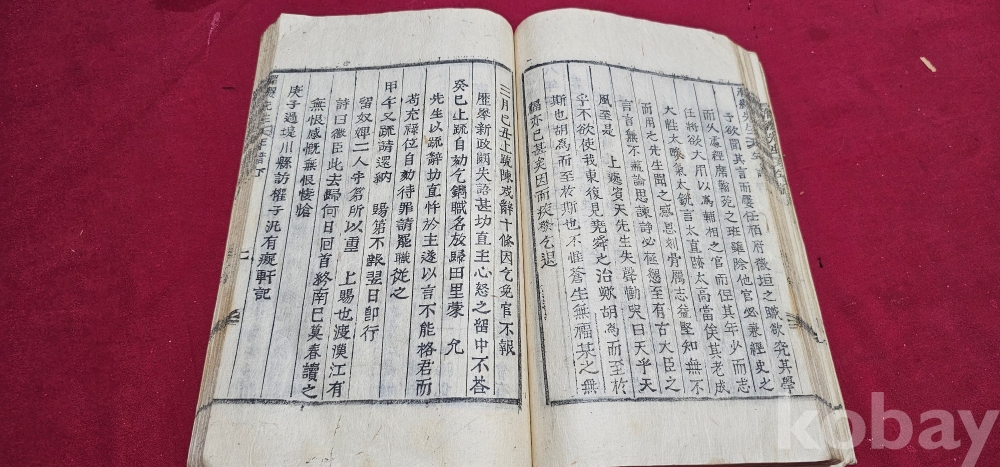 子欲聞其言而屢任栢府薇垣之職欲究其學
而久處經席翰苑之班雖除他官必兼經史之
任將欲大用以爲輔相之官而但其年少而志
大性太 氣太銳言太直跡太高當俟其老成
而用之先生聞之感恩刻骨厲志益堅知無不
言言無不盡論思諫諍必極懇至有古大臣之
風至是 上賓天先生失聲慟哭曰天乎天
乎不欲使我東復見堯舜之治歟胡爲而至於
斯也胡爲而至於斯也不惟蒼生無福某之無
福亦已甚矣因而疾發乞退
三月己丑上疏陳戒辭十條因乞免官不報
歷擧新政闕失語甚切直主心怒之留中不答
癸巳上疏自劾乞鐫職名放歸田里蒙 允
先生以疏辭切直忤於主遂以言不能格君而
苟充祿位自劾待罪請罷職從之
甲午又疏請還納 賜第不報翌日卽行
留奴婢二人守第所以重 上賜也渡漢江有
詩曰微臣此去歸何日回首終南已莫春讀之
無恨感慨無恨悽愴
庚子過堤川縣訪權子汎有癡軒記
kobay